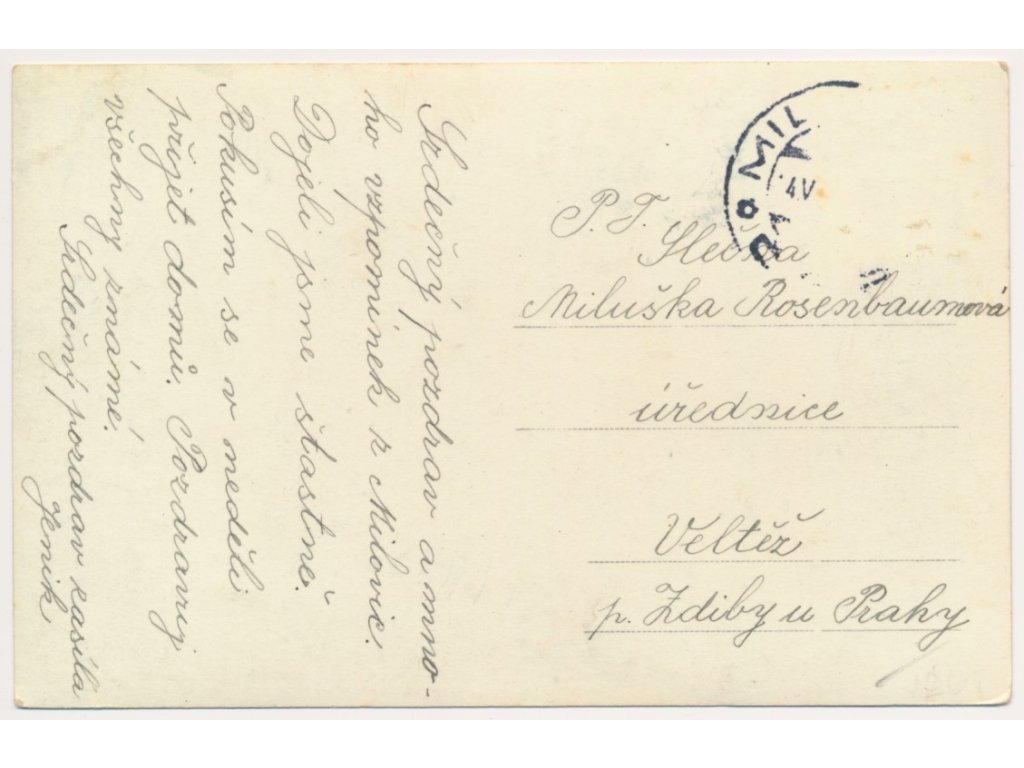 Srdečný pozdrav a mno-
ho vzpomínek z Milovic.
Dojeli jsme šťastně.
Pokusím se v neděli
přijet domů. Pozdravuj
všechny známé.
Srdečný pozdrav zasílá
Jeník
MIL
4 V
P. T.
Slečna
Miluška Rosenbaumová
úřednice
Veltěž
p. Zdiby u Prahy